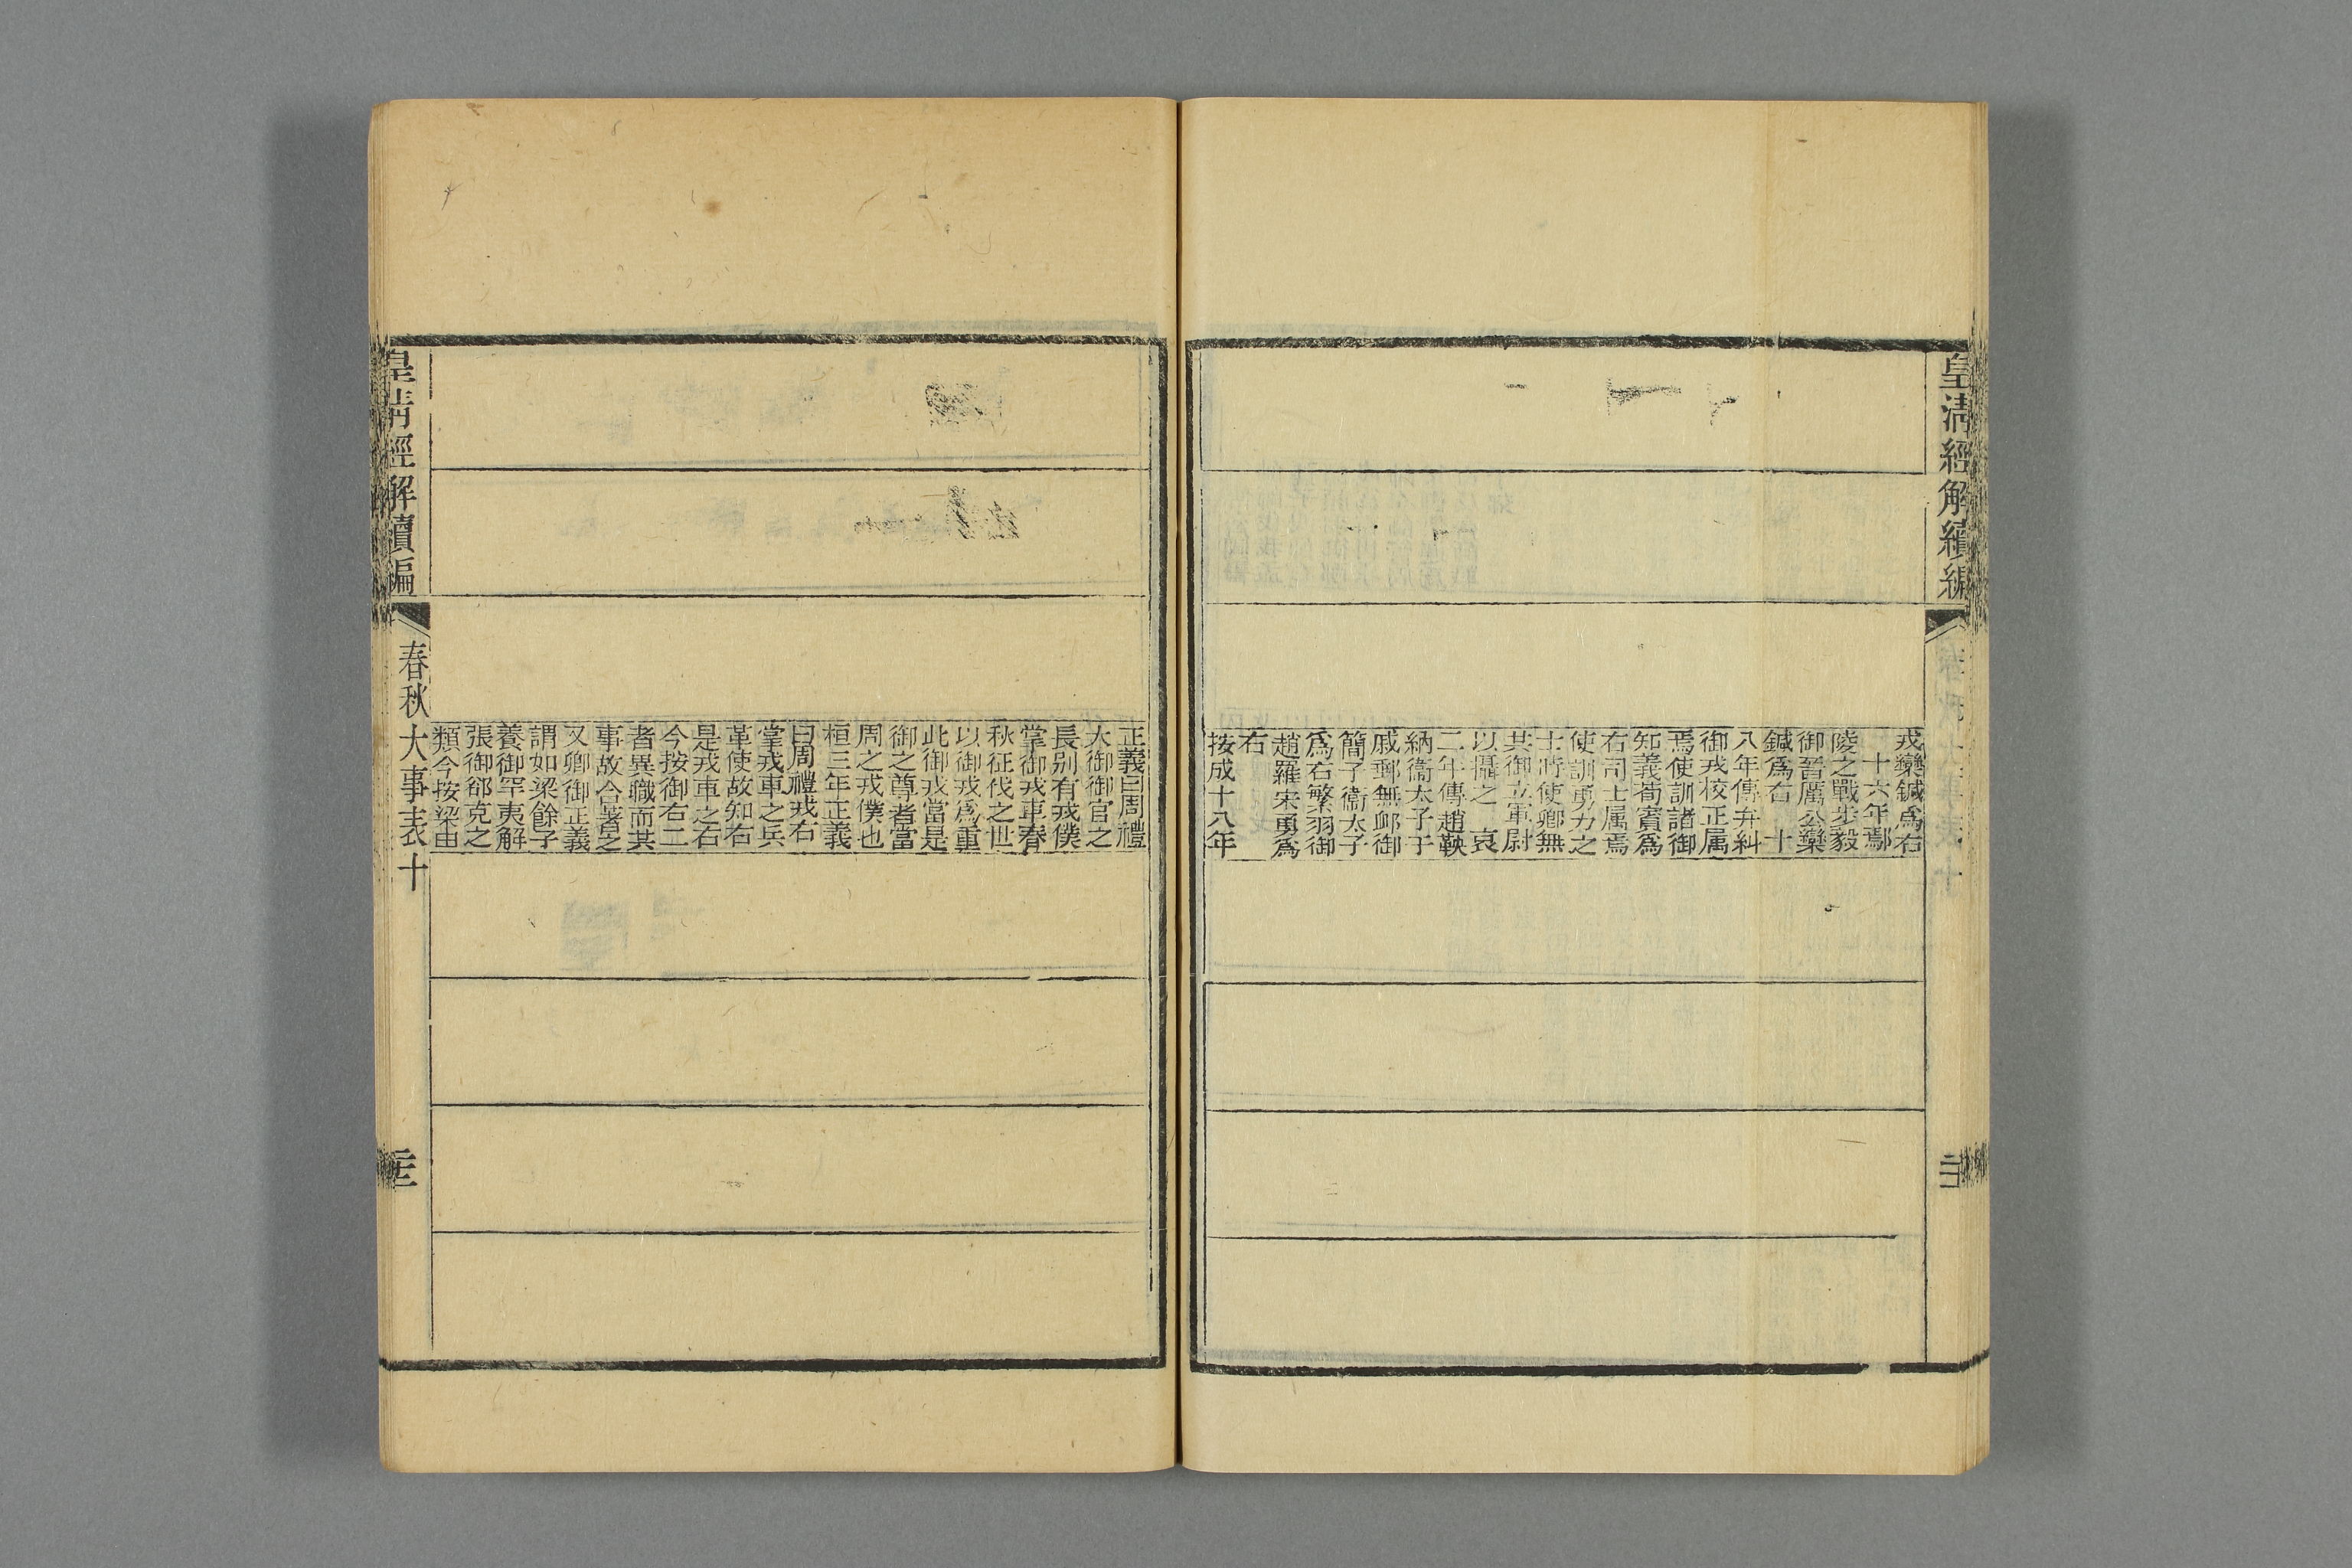 皇清經解續編
戎欒鍼為右
十六年鄢
陵之戰步毅
御晉厲公欒
鍼爲右 十
八年傳弁糾
御戎校正属
焉使訓諸御
知義荀賓爲
右司士属焉
使訓勇力之
士時使卿無
共御立軍尉
以攝之 哀
二年傳趙鞅
納衞太子于
戚郵無卹御
簡子衞太子
爲右繁羽御
趙羅宋勇爲
右
按成十八年
正義曰周禮
大御御官之
長别有戎僕
掌御戎車春
秋征伐之世
以御戎爲重
此御戎當是
御之尊者當
周之戎僕也
桓三年正義
曰周禮戎右
掌戎車之兵
革使故知右
是戎車之右
今按御右二
者異職而其
事故合著之
又卿御正義
謂如梁餘子
養御罕夷解
張御郤克之
類今按梁由
皇清經解續編
春秋大事表十